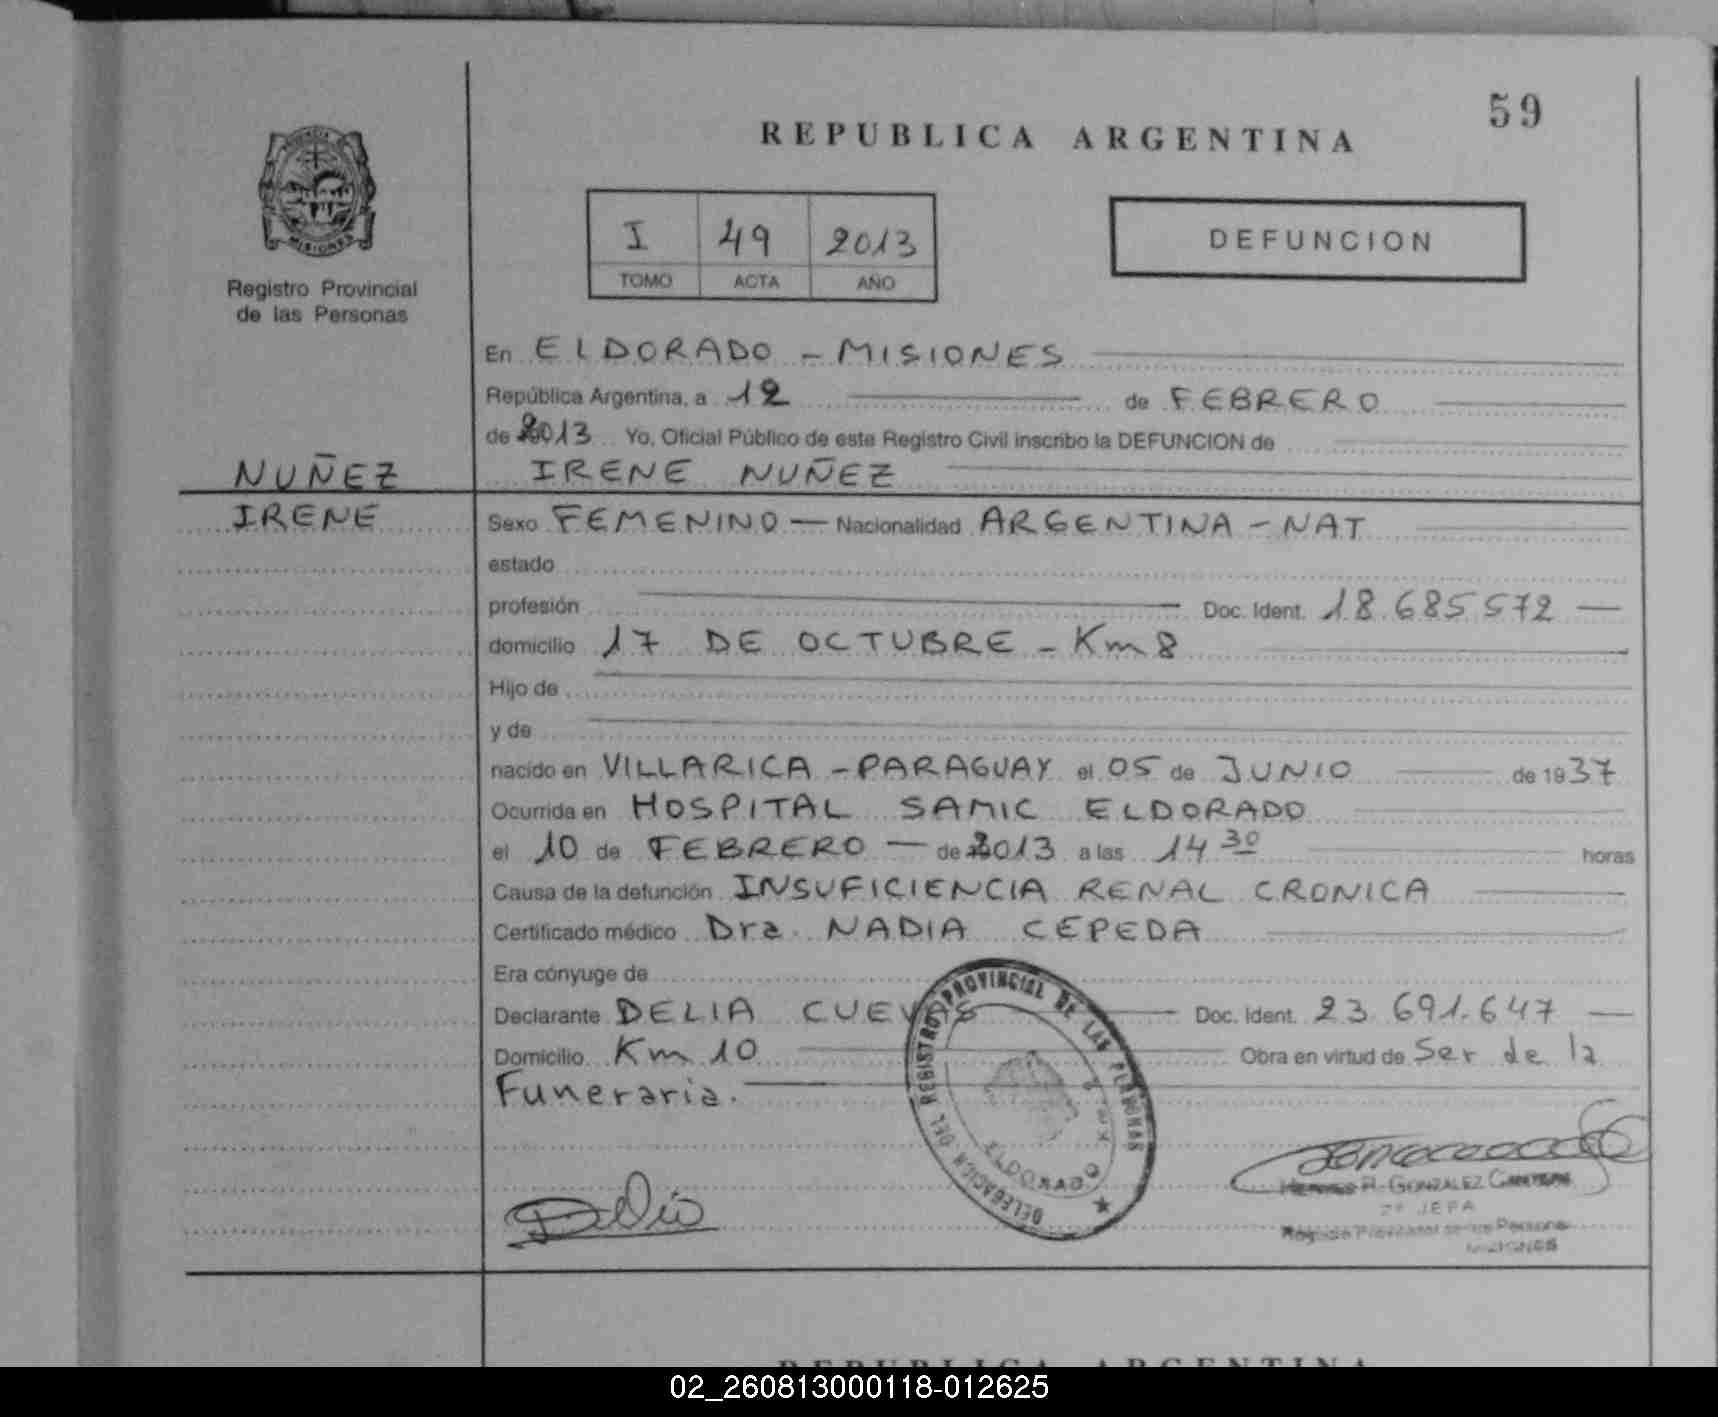 59
REPUBLICA ARGENTINA
I 49 2013
TOMO ACTA AÑO
DEFUNCION
MISIONES
Registro Provincial
de las Personas
En ELDORADO - MISIONES
República Argentina, a 12 de FEBRERO
de 2013 Yo, Oficial Público de este Registro Civil inscribo la DEFUNCION de
NUÑEZ IRENE NUÑEZ
IRENE Sexo FEMENINO — Nacionalidad ARGENTINA - NAT
estado
profesión Doc. Ident. 18.685.572 —
domicilio 17 DE OCTUBRE - Km 8
Hijo de
y de
nacido en VILLARICA - PARAGUAY el 05 de JUNIO de 1937
Ocurrida en HOSPITAL SAMIC ELDORADO
el 10 de FEBRERO — de 2013 a las 14 30 horas
Causa de la defunción INSUFICIENCIA RENAL CRONICA
Certificado médico Dra. NADIA CEPEDA
Era cónyuge de
Declarante DELIA CUEVAS Doc. Ident. 23.691.647 —
Domicilio Km 10 Obra en virtud de Ser de la
Funeraria.
DELEGACION DEL REGISTRO PROVINCIAL DE LAS PERSONAS
ELDORADO
Delia
R. GONZALEZ
2º JEFA
MISIONES
REPUBLICA ARGENTINA
02_260813000118-012625